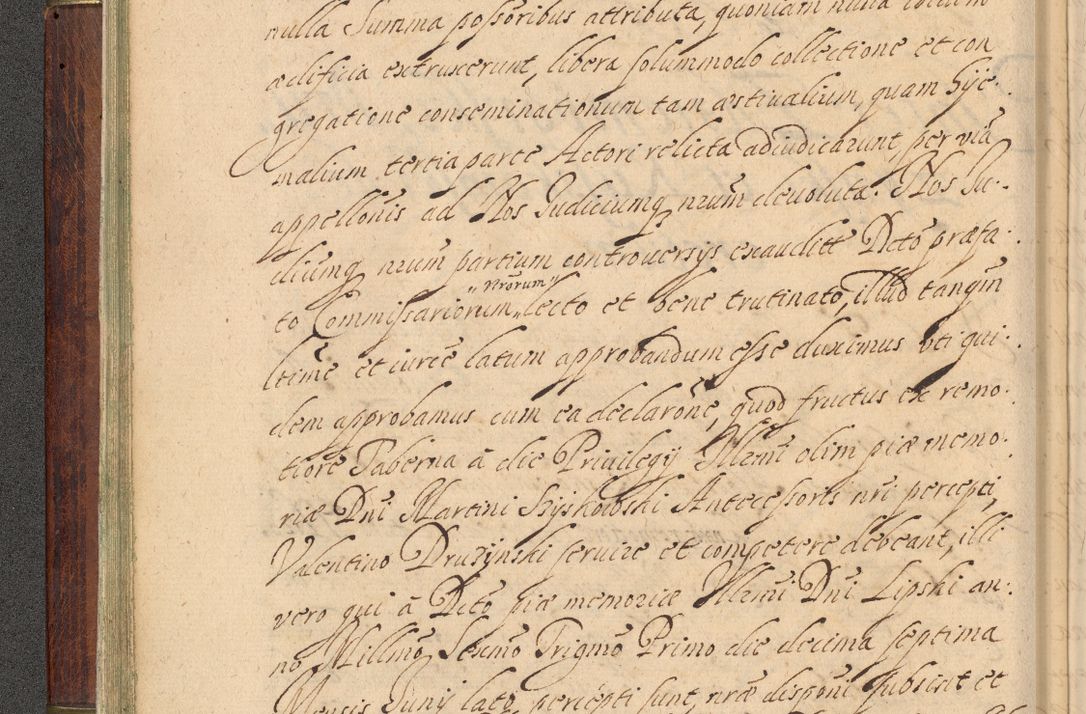 nulla Summa possoribus attributa, quoniam nulla
ædificia extruxerunt, libera solummodo collectione et con
gregatione conseminationum tam æstivalium, quam hije-
malium, tertia parte Actori relicta adiudicarunt, per viã
appellõnis ad Nos Judiciumq nrũm devoluta. Nos Ju-
diciumq nrũm partium controversijs exauditt Dctõ præfa-
to Commissariorum „Nrõrum„ lecto et bene trutinatõ, illud tanqm̃
ltimẽ et iurcẽ latum approbandum esse duximus vti qui-
dem approbamus cum ea declarõne, quod fructus ex remo-
tiorẽ Taberna à die Privilegij Illrmĩ olim piæ memo-
riæ Dnĩ Martini Szyskowski Antecessoris nrĩ percepti,
Valentino Druzynski servire et competere debeant, illi
vero qui à Dctõ piæ memoriæ Illrmĩ Dnĩ Lipski an-
no Millmõ Sexmõ Trigmõ Primo die decima septima
Mensis Junij latõ, percepti sunt, nræ disponĩ subsint et